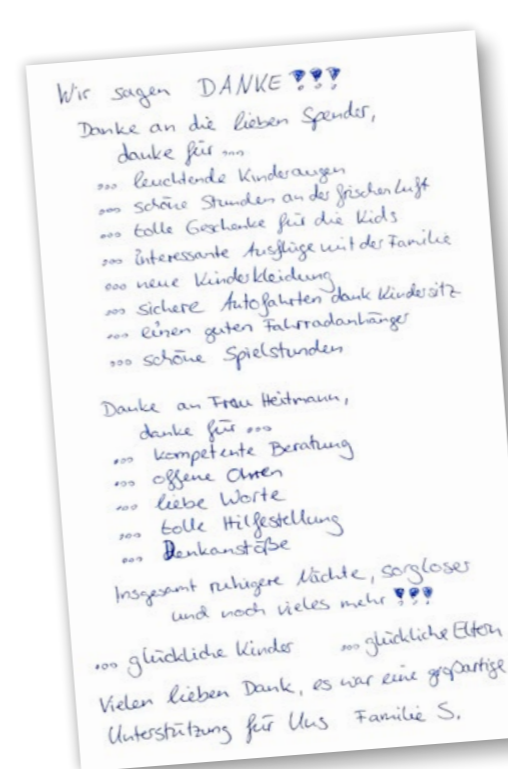 Wir sagen DANKE !!!
Danke an die lieben Spender,
danke für ...
... leuchtende Kinderaugen
... schöne Stunden an der frischen Luft
... tolle Geschenke für die Kids
... interessante Ausflüge mit der Familie
... neue Kinderkleidung
... sichere Autofahrten dank Kindersitz
... einen guten Fahrradanhänger
... schöne Spielstunden
Danke an Frau Heitmann,
danke für ...
... kompetente Beratung
... offene Ohren
... liebe Worte
... tolle Hilfestellung
... Denkanstöße
Insgesamt ruhigere Nächte, sorgloser
und noch vieles mehr !!!
... glückliche Kinder ... glückliche Eltern
Vielen lieben Dank, es war eine großartige
Unterstützung für Uns Familie S.